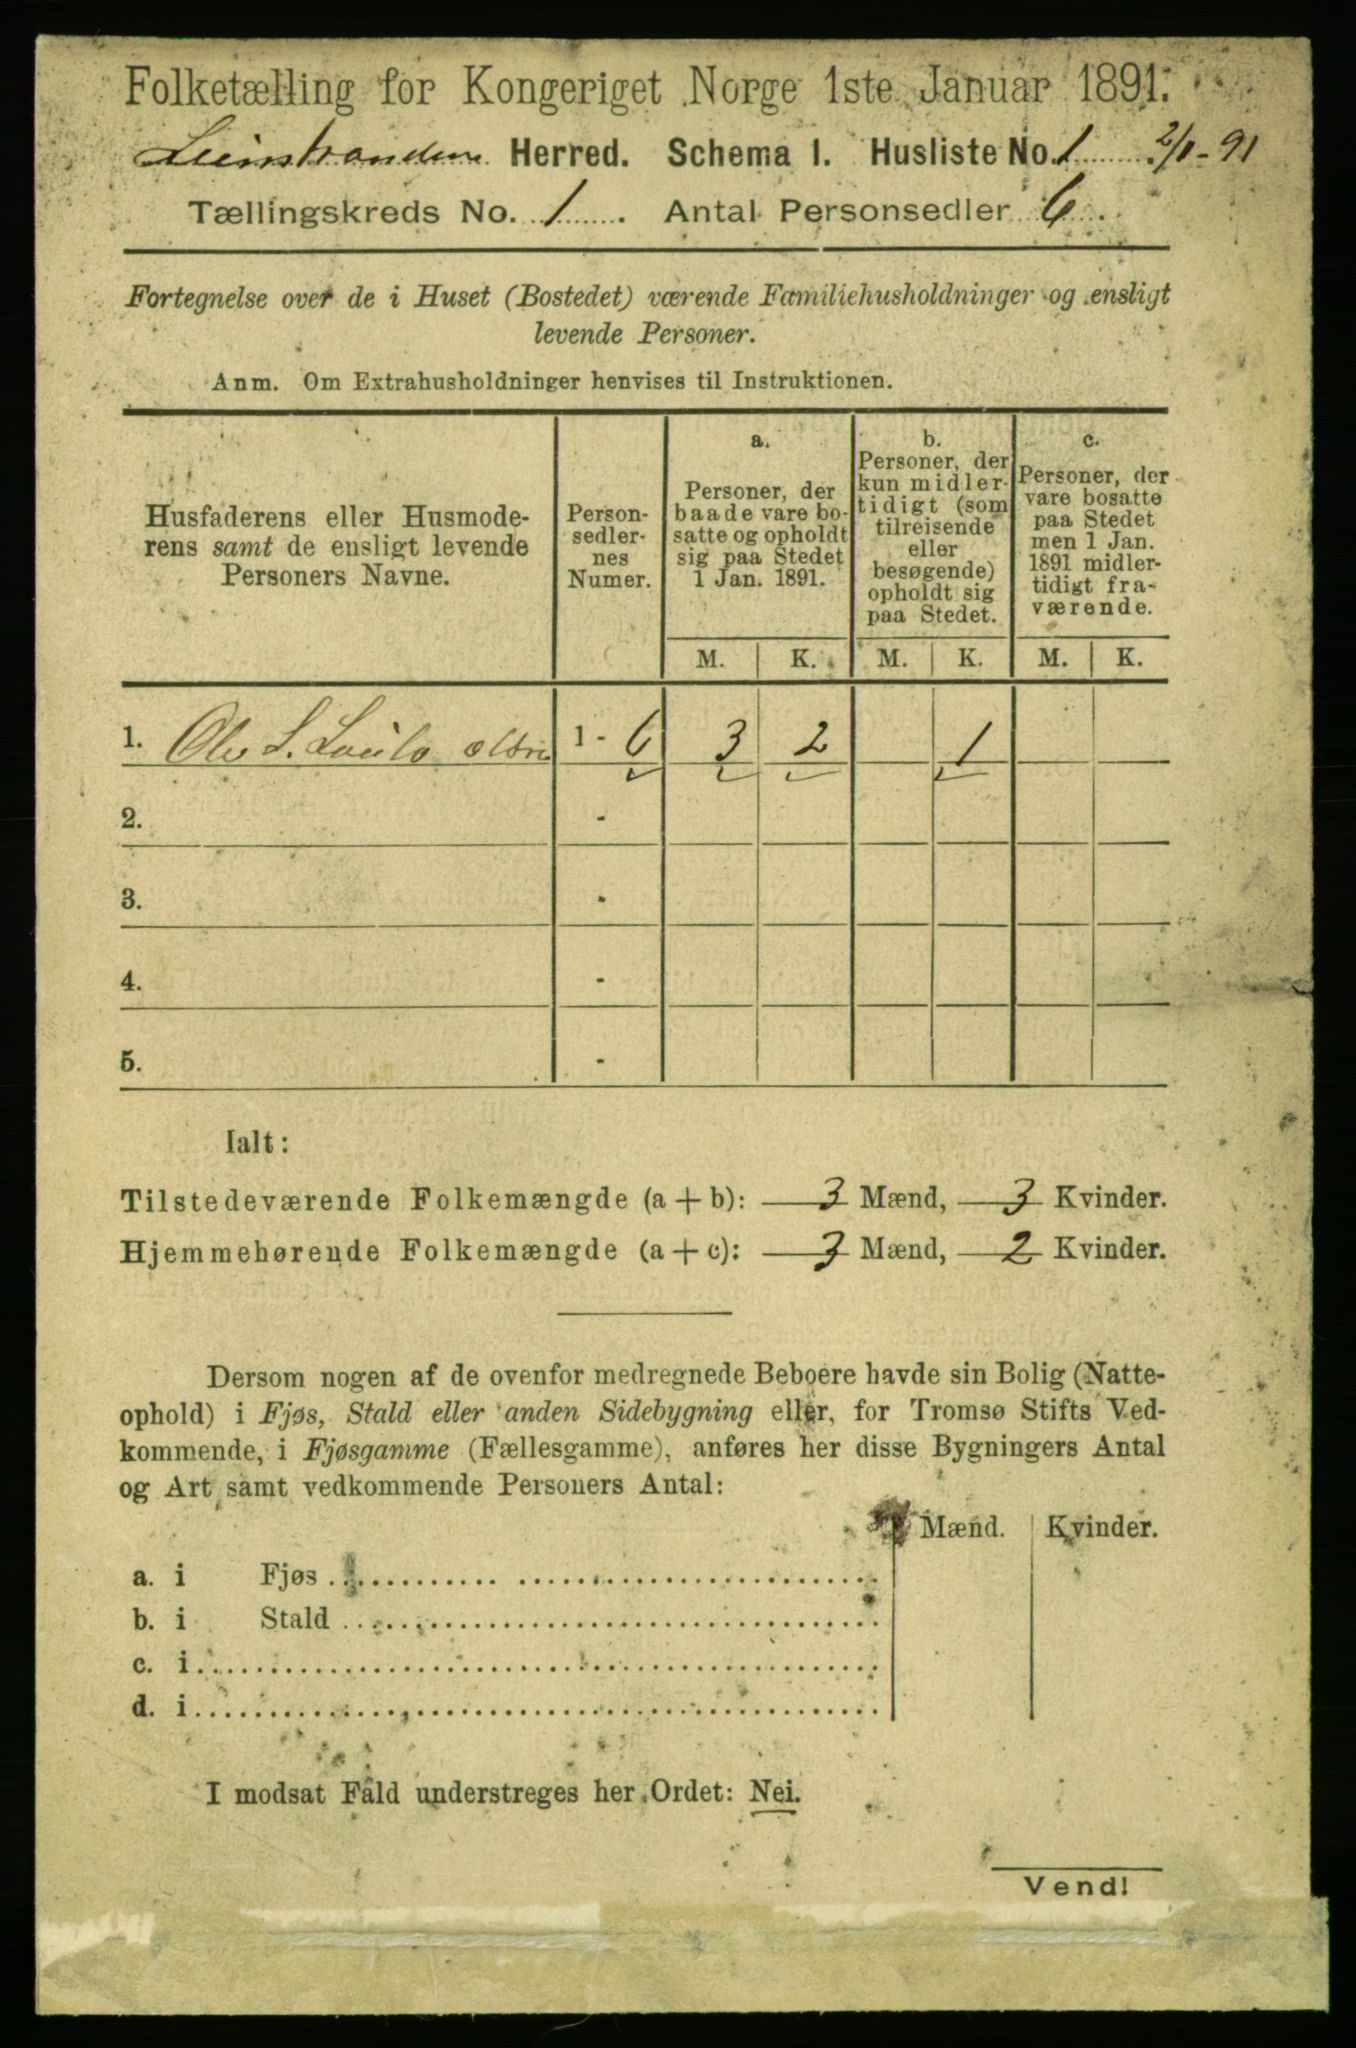 Folketælling for Kongeriget Norge 1ste Januar 1891.
Leinstranden Herred. Schema 1. Husliste No. 1 2/1-91
Tællingskreds No. 1. Antal Personsedler 6.
Fortegnelse over de i Huset (Bostedet) værende Familiehusholdninger og ensligt
levende Personer.
Anm. Om Extrahusholdninger henvises til Instruktionen.
Husfaderens eller Husmode-
rens samt de ensligt levende
Personers Navne.
Person-
sedler-
nes
Numer.
a.
Personer, der
baade vare bo-
satte og opholdt
sig paa Stedet
1 Jan. 1891.
b.
Personer, der
kun midler-
tidigt (som
tilreisende
eller
besøgende)
opholdt sig
paa Stedet.
c.
Personer, der
vare bosatte
paa Stedet
men 1 Jan.
1891 midler-
tidigt fra-
værende.
M. K. M. K. M. K.
1. Ole S. 1 - 6 3 2 1
2. -
3. -
4. -
5. -
Ialt:
Tilstedeværende Folkemængde (a + b): 3 Mænd, 3 Kvinder.
Hjemmehørende Folkemængde (a + c): 3 Mænd, 2 Kvinder.
Dersom nogen af de ovenfor medregnede Beboere havde sin Bolig (Natte-
ophold) i Fjøs, Stald eller anden Sidebygning eller, for Tromsø Stifts Ved-
kommende, i Fjøsgamme (Fællesgamme), anføres her disse Bygningers Antal
og Art samt vedkommende Personers Antal:
Mænd. Kvinder.
a. i Fjøs
b. i Stald
c. i
d. i
I modsat Fald understreges her Ordet: Nei.
Vend!